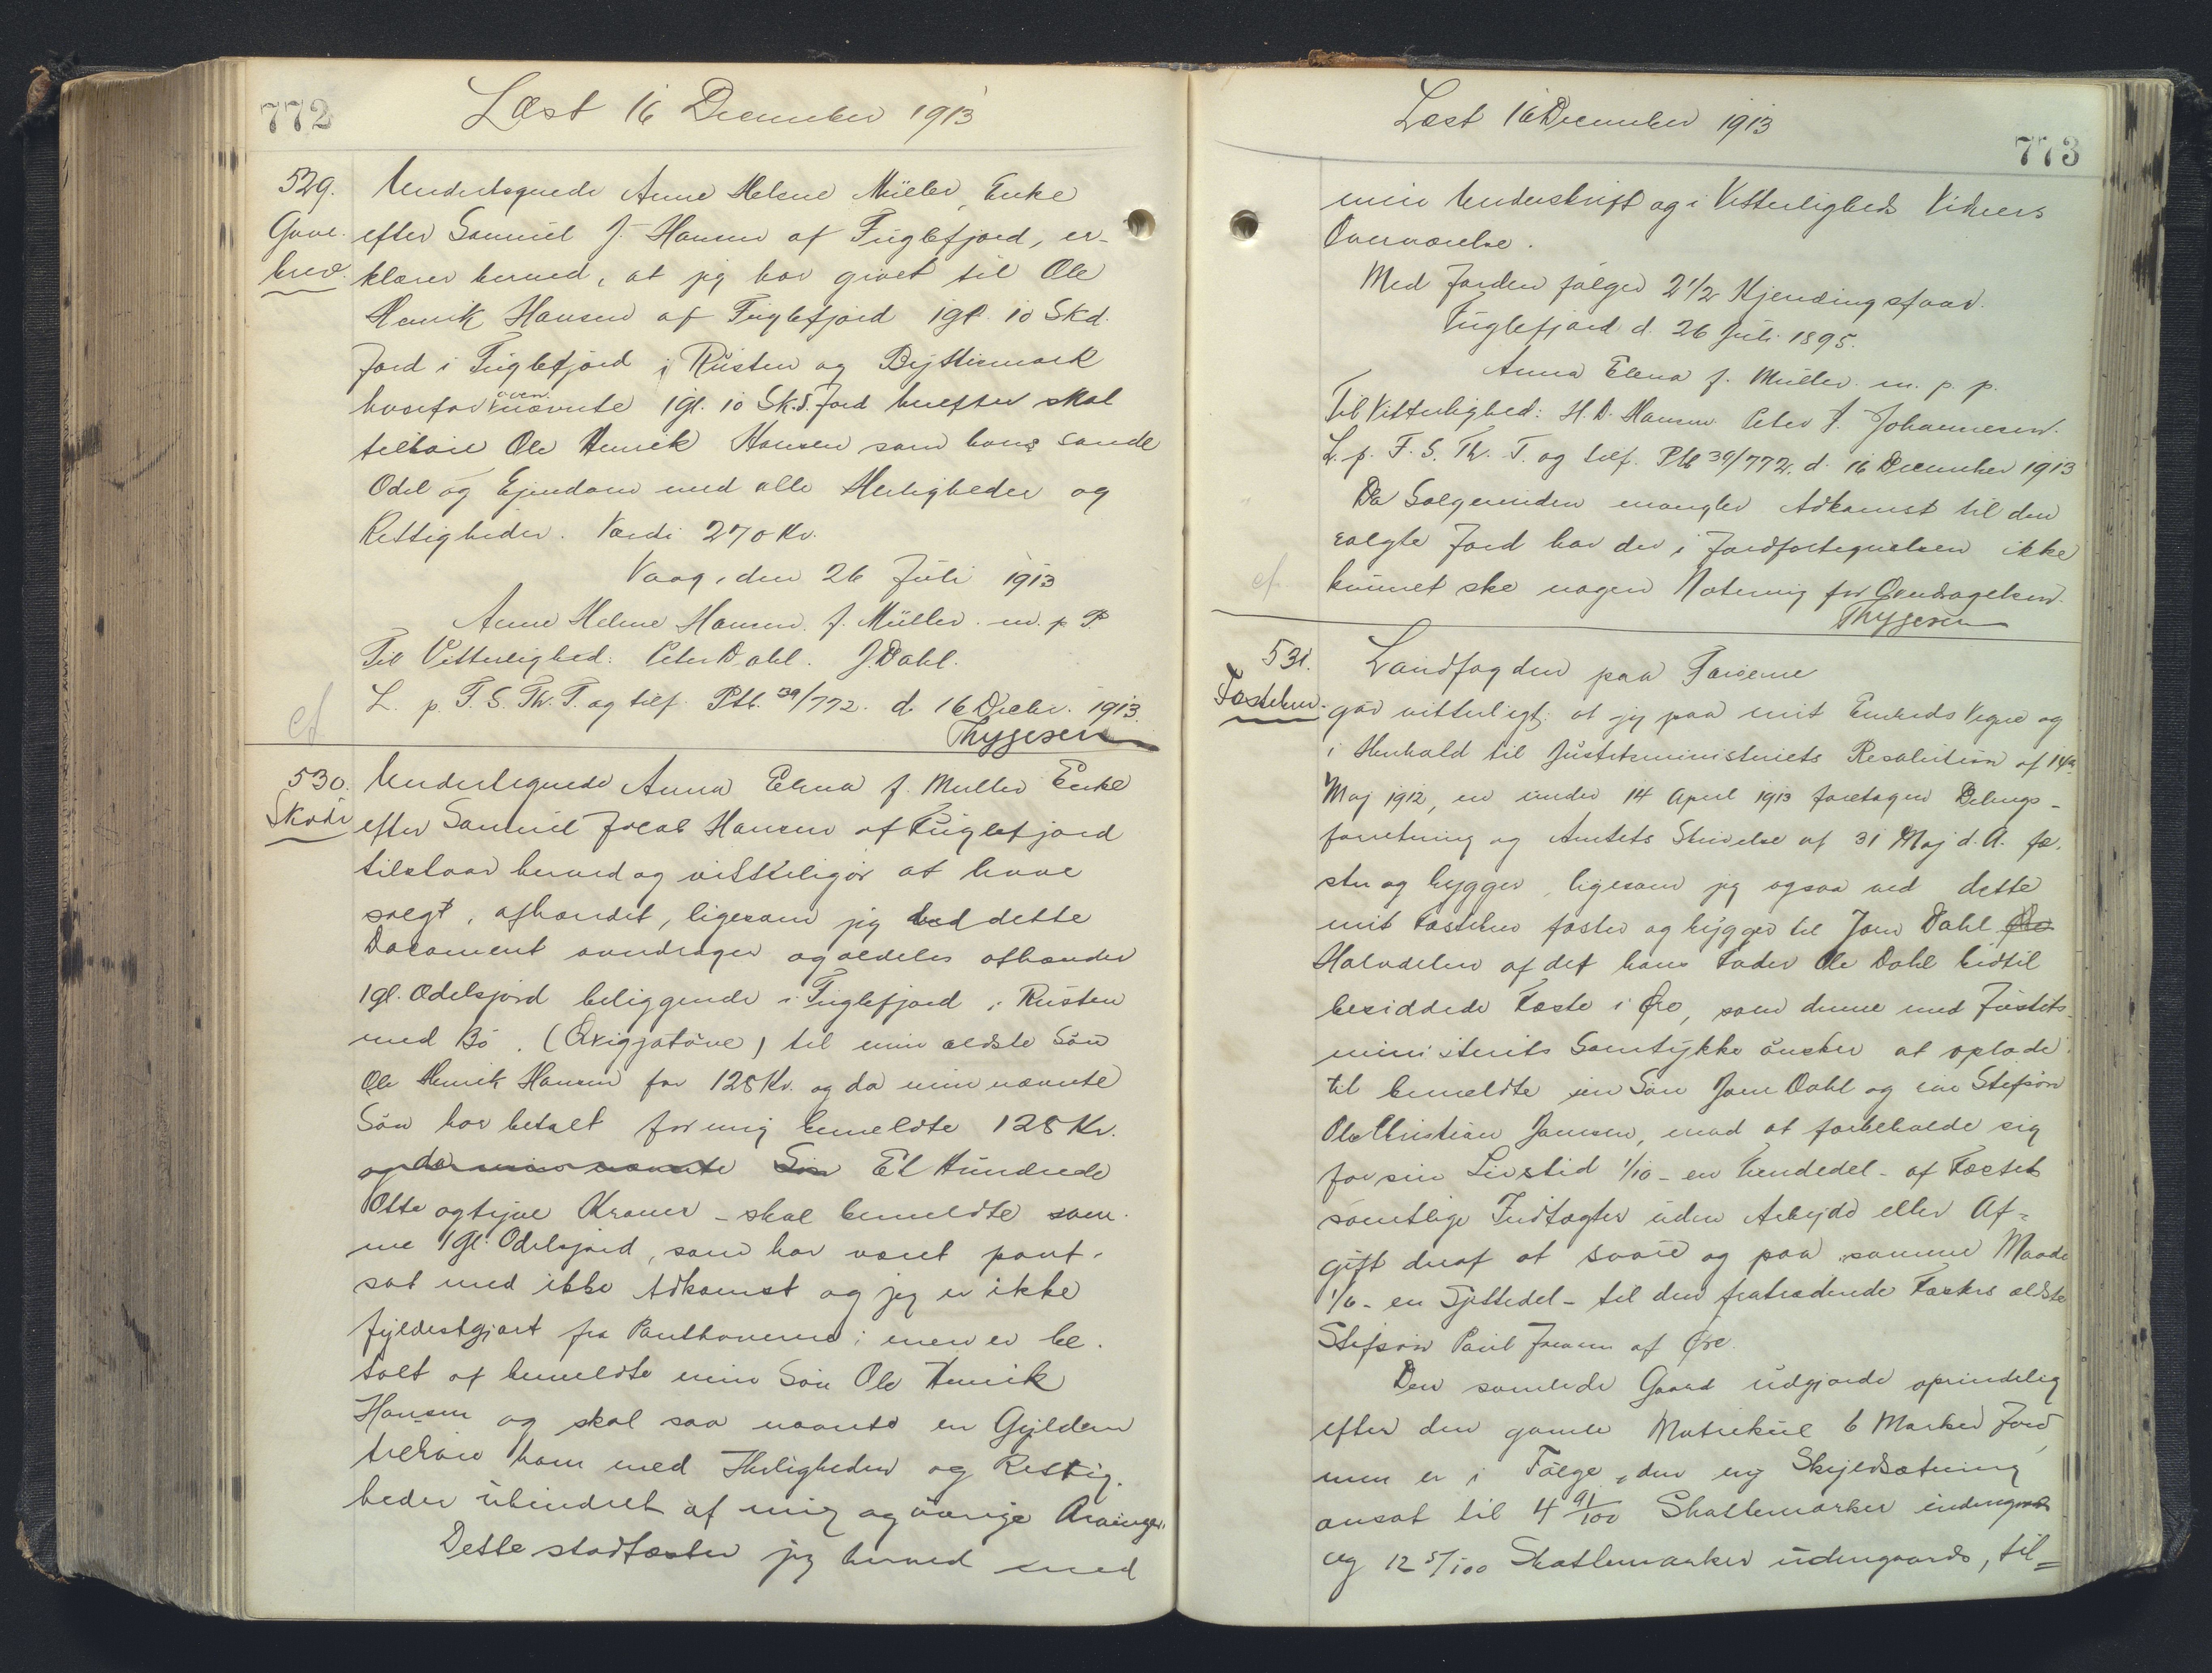 772
Læst 16 December 1913
529.
Gave-
brev.
Undertegnede Anne Helene Müller, Enke
efter Samuel J. Hansen af Fuglefjord, er-
klærer herved, at jeg har givet til Ole
Henrik Hansen af Fuglefjord 1gl. 10 Skd.
Jord i Fuglefjord i Rusten og Byttismark
hvorfor ovennævnte 1gl. 10 Sk.d. Jord herefter skal
tilhøre Ole Henrik Hansen som hans sande
Odel og Ejendom med alle Herligheder og
Rettigheder. Værdi 270 Kr.
Vaag, den 26 Juli 1913
Anne Helene Hansen f. Müller m. p. P.
Til Vitterlighed: Peter Dahl. J. Dahl.
L. p. F. S. Th. T. og tilf. Ptb. 39/772. d. 16 Decbr. 1913.
cf
Thygesen
530.
Skøde
Undertegnede Anna Elena f. Muller Enke
efter Samuel Jocab Hansen af Fuglefjord
tilstaar herved og vitterligør at have
solgt, afhændet, ligesom jeg ved dette
Document overdrager og aldeles afhænder
1gl. Odelsjord beliggende i Fuglefjord i Rusten
med Bø. ( ) til min ældste Søn
Ole Henrik Hansen for 128 Kr. og da min nævnte
Søn har betalt for mig bemeldte 128 Kr.
og da min nævnte Søn Et Hundrede
Otte og tyve Kroner - skal bemeldte sam-
me 1gl. Odelsjord, som har været pant-
sat med ikke Adkomst og jeg er ikke
fyldestgjort fra Panthaverne; men er be-
talt af bemeldte min Søn Ole Henrik
Hansen og skal saa nævnte en Gylden
tilhøre ham med Herligheder og Rettig-
heder uhindret af mig og øvrige Arvinger.
Dette stadfæster jeg herved med
773
Læst 16 December 1913
min Underskrift og i Vitterligheds Vidners
Overværelse.
Med Jorden følger 2 1/2 Kjendingsfaar.
Fuglefjord d. 26 Juli 1895.
Anna Elena f. Müller m. p. p.
Til Vitterlighed: H. D. Hansen. Peter J. Johannesen.
L. p. F. S. Th. T. og tilf. Ptb 39/772. d. 16 December 1913
Da Sælgerinden mangler Adkomst til den
solgte Jord har der i Jordfortegnelsen ikke
kunnet ske nogen Notering for Overdragelsen.
cf.
Thygesen
531.
Fæstebrev.
Landfogden paa Færøerne
gør vitterligt: at jeg paa mit Embeds Vegne og
i Henhold til Justitsministeriets Resolution af 14de
Maj 1912, en under 14 April 1913 foretagen Delings-
forretning og Amtets Skrivelse af 31 Maj d. A. fæ-
ster og bygger, ligesom jeg ogsaa ved dette
mit Fæstebrev fæster og bygger til Joen Dahl Øre
Halvdelen af det hans Fader Ole Dahl hidtil
besiddede Fæste i Øre, som denne med Justits-
ministeriets Samtykke ønsker at oplade
til bemeldte sin Søn Joen Dahl og sin Stifsøn
Ole Christian Joensen, mod at forbeholde sig
for sin Livstid 1/10 - en tiendedel - af Fæstets
samtlige Indtægter uden Arbejde eller Af-
gift deraf at svare og paa samme Maade
1/6 - en Sjettedel - til den fratrædende Fæsters ældste
Stifsøn Poul Joensen af Øre.
Den samlede Gaard udgjorde oprindelig
efter den gamle Matrikul 6 Marker Jord,
men er i Følge den ny Skyldsætning
ansat til 4 91/100 Skattemarker indengaards
og 12 5/100 Skattemarker udengaards, til-